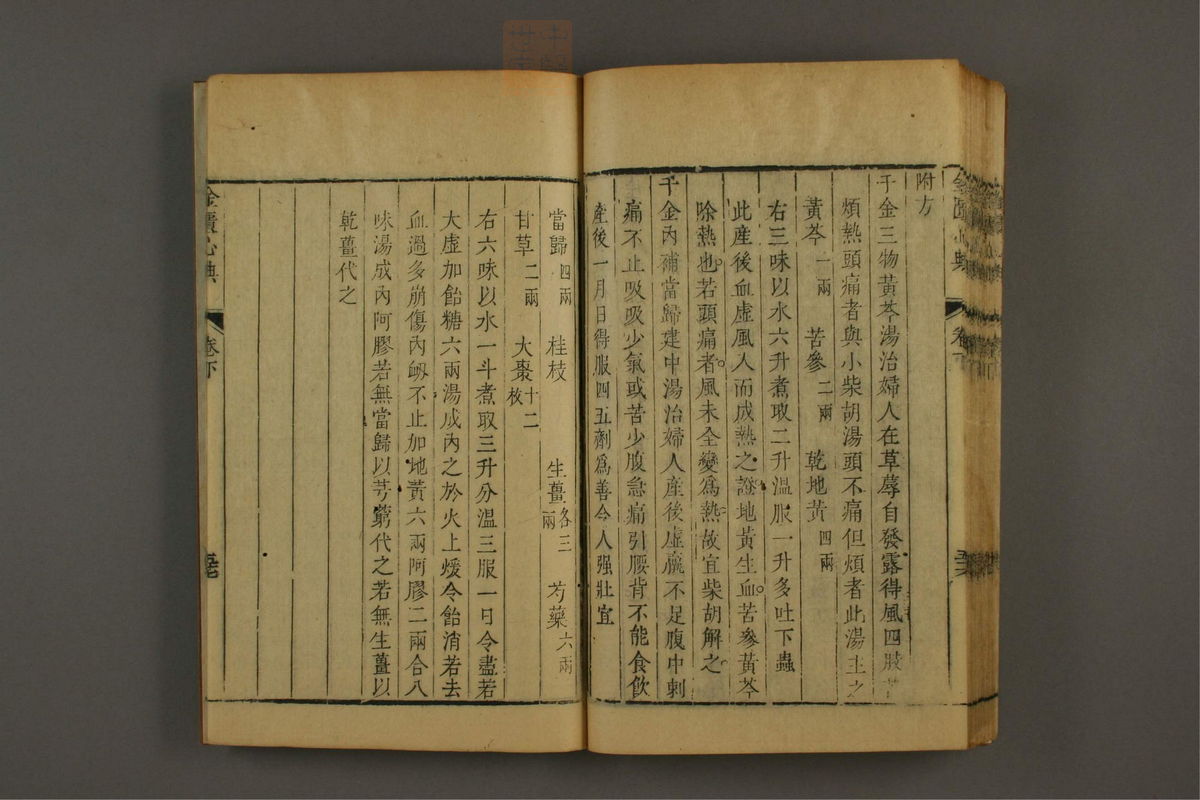 附方
千金三物黃芩湯治婦人在草蓐自發露得風四肢苦
煩熱頭痛者與小柴胡湯頭不痛但煩者此湯主之
黃芩一兩 苦參二兩 乾地黃四兩
右三味以水六升煮取二升溫服一升多吐下蟲
此產後血虛風入而成熱之證地黃生血苦參黃芩
除熱也若頭痛者風未全變為熱故宜柴胡解之
千金內補當歸建中湯治婦人產後虛羸不足腹中刺
痛不止吸吸少氣或苦少腹急痛引腰背不能食飲
產後一月日得服四五劑為善令人强壯宜
當歸四兩 桂枝 生薑各三兩 芍藥六兩
甘草二兩 大棗十二枚
右六味以水一斗煮取三升分溫三服一日令盡若
大虛加飴糖六兩湯成內之於火上煖令飴消若去
血過多崩傷內衂不止加地黃六兩阿膠二兩合八
味湯成內阿膠若無當歸以芎藭代之若無生薑以
乾薑代之
金匱心典 卷下
金匱心典 卷下